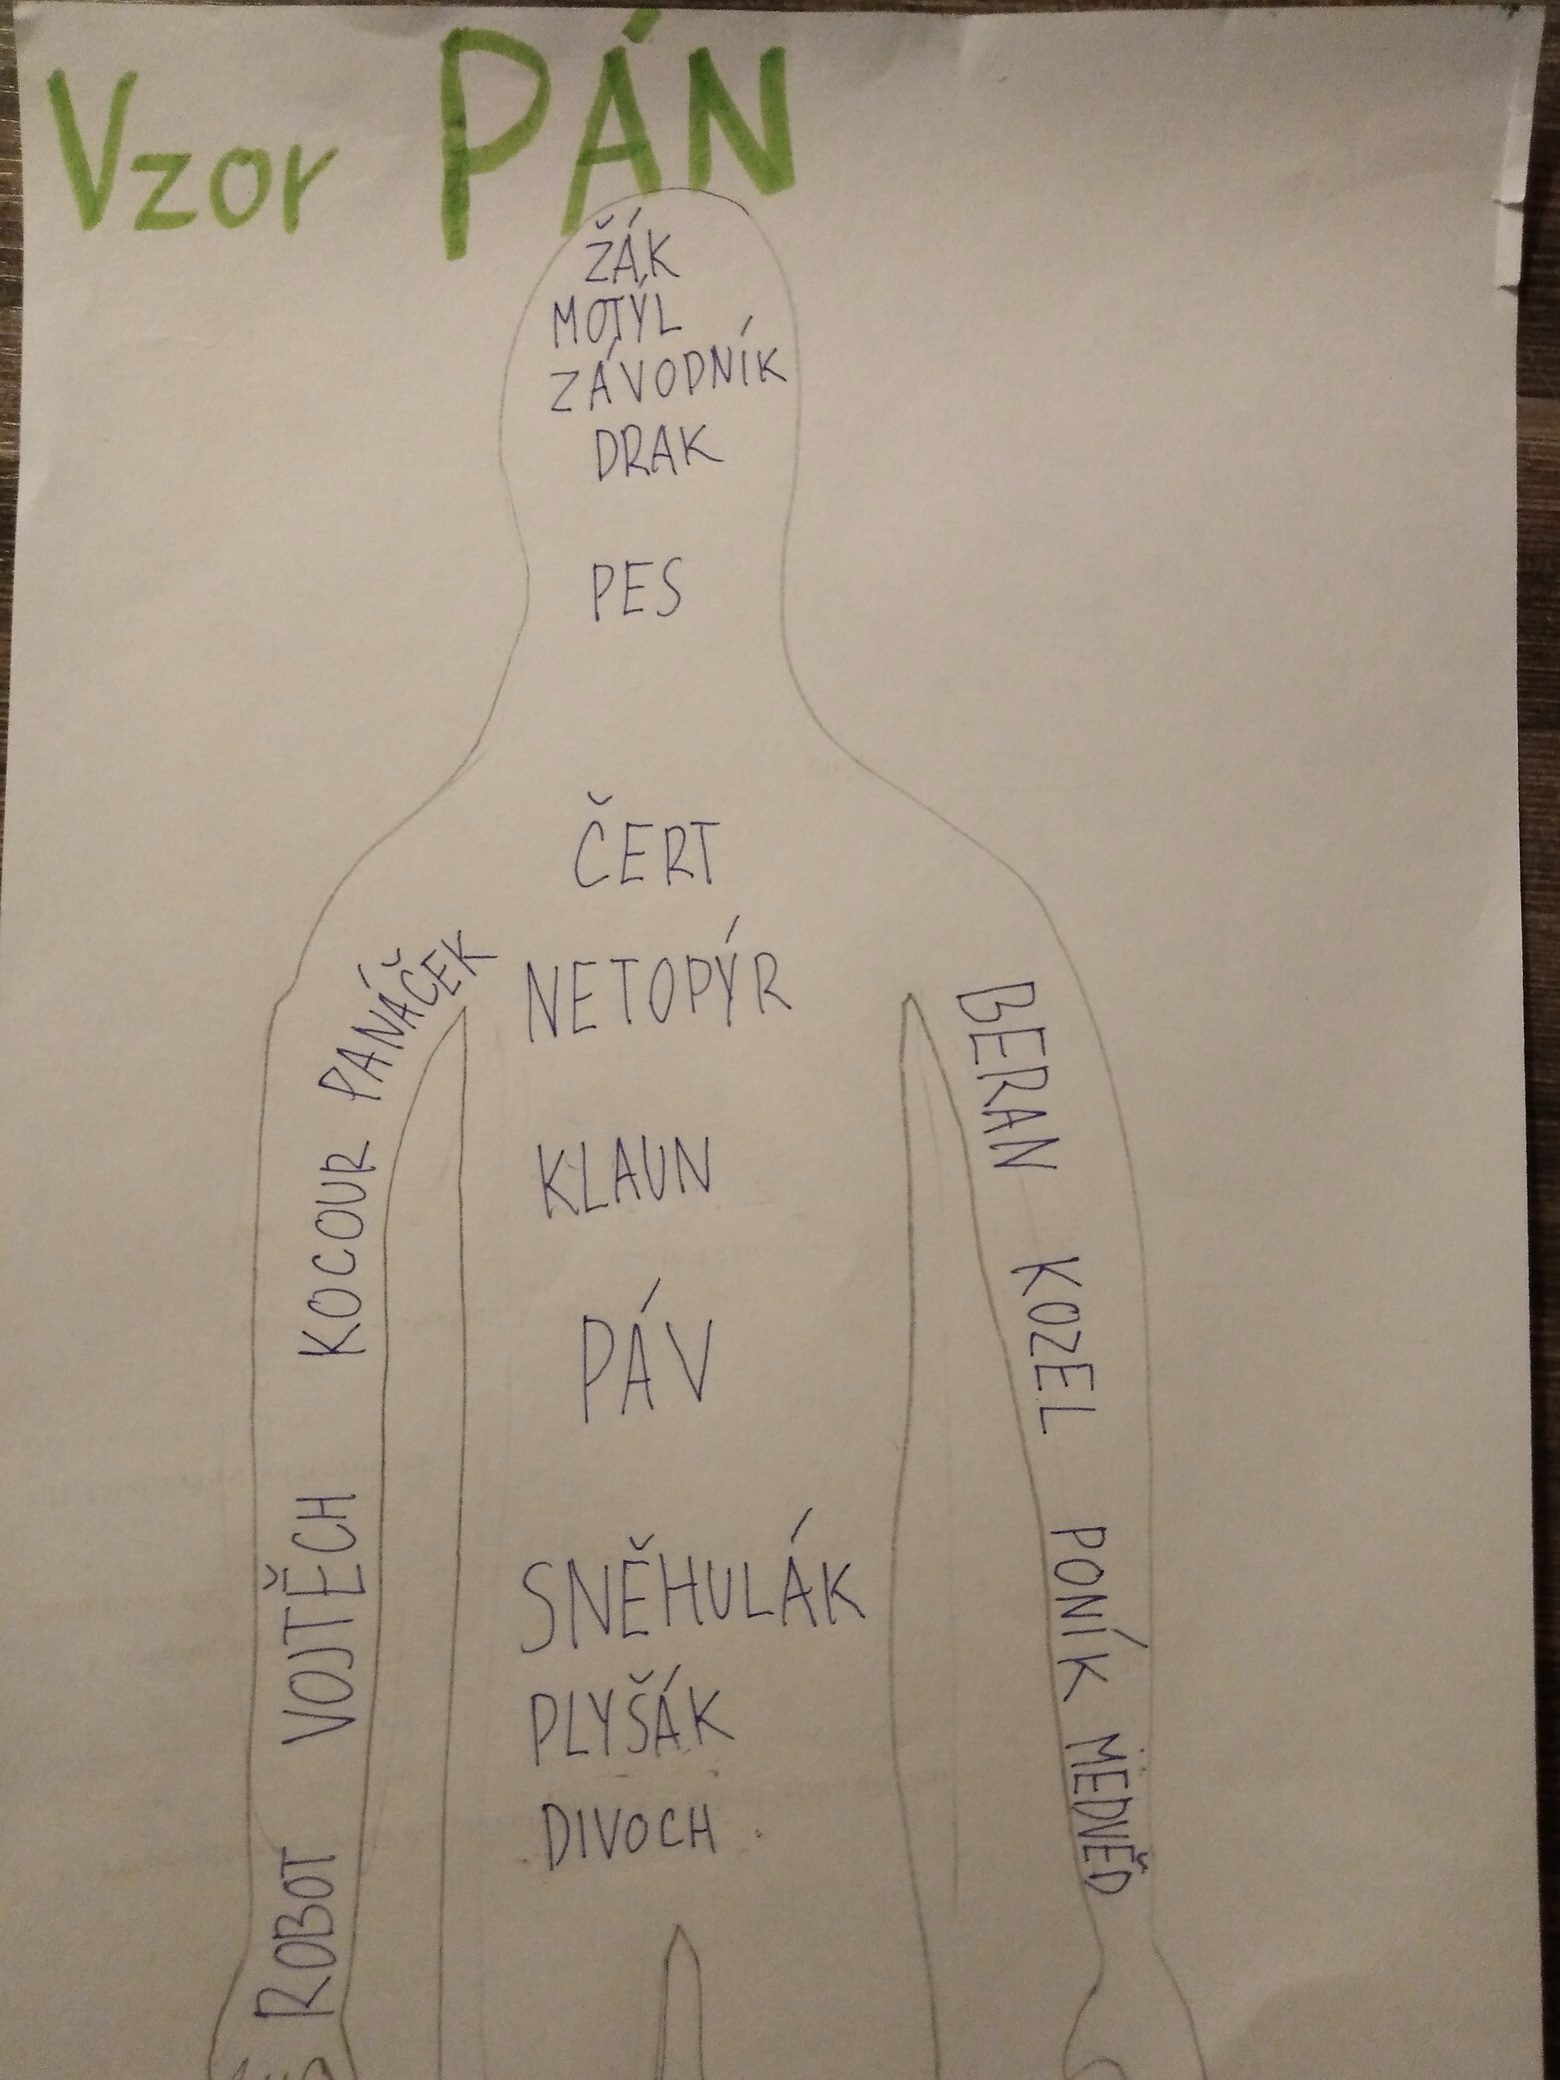 Vzor PÁN
ŽÁK
MOTÝL
ZÁVODNÍK
DRAK
PES
ČERT
NETOPÝR
KLAUN
PÁV
SNĚHULÁK
PLYŠÁK
DIVOCH
ROBOT VOJTĚCH KOCOUR PANÁČEK
BERAN KOZEL PONÍK MEDVĚD